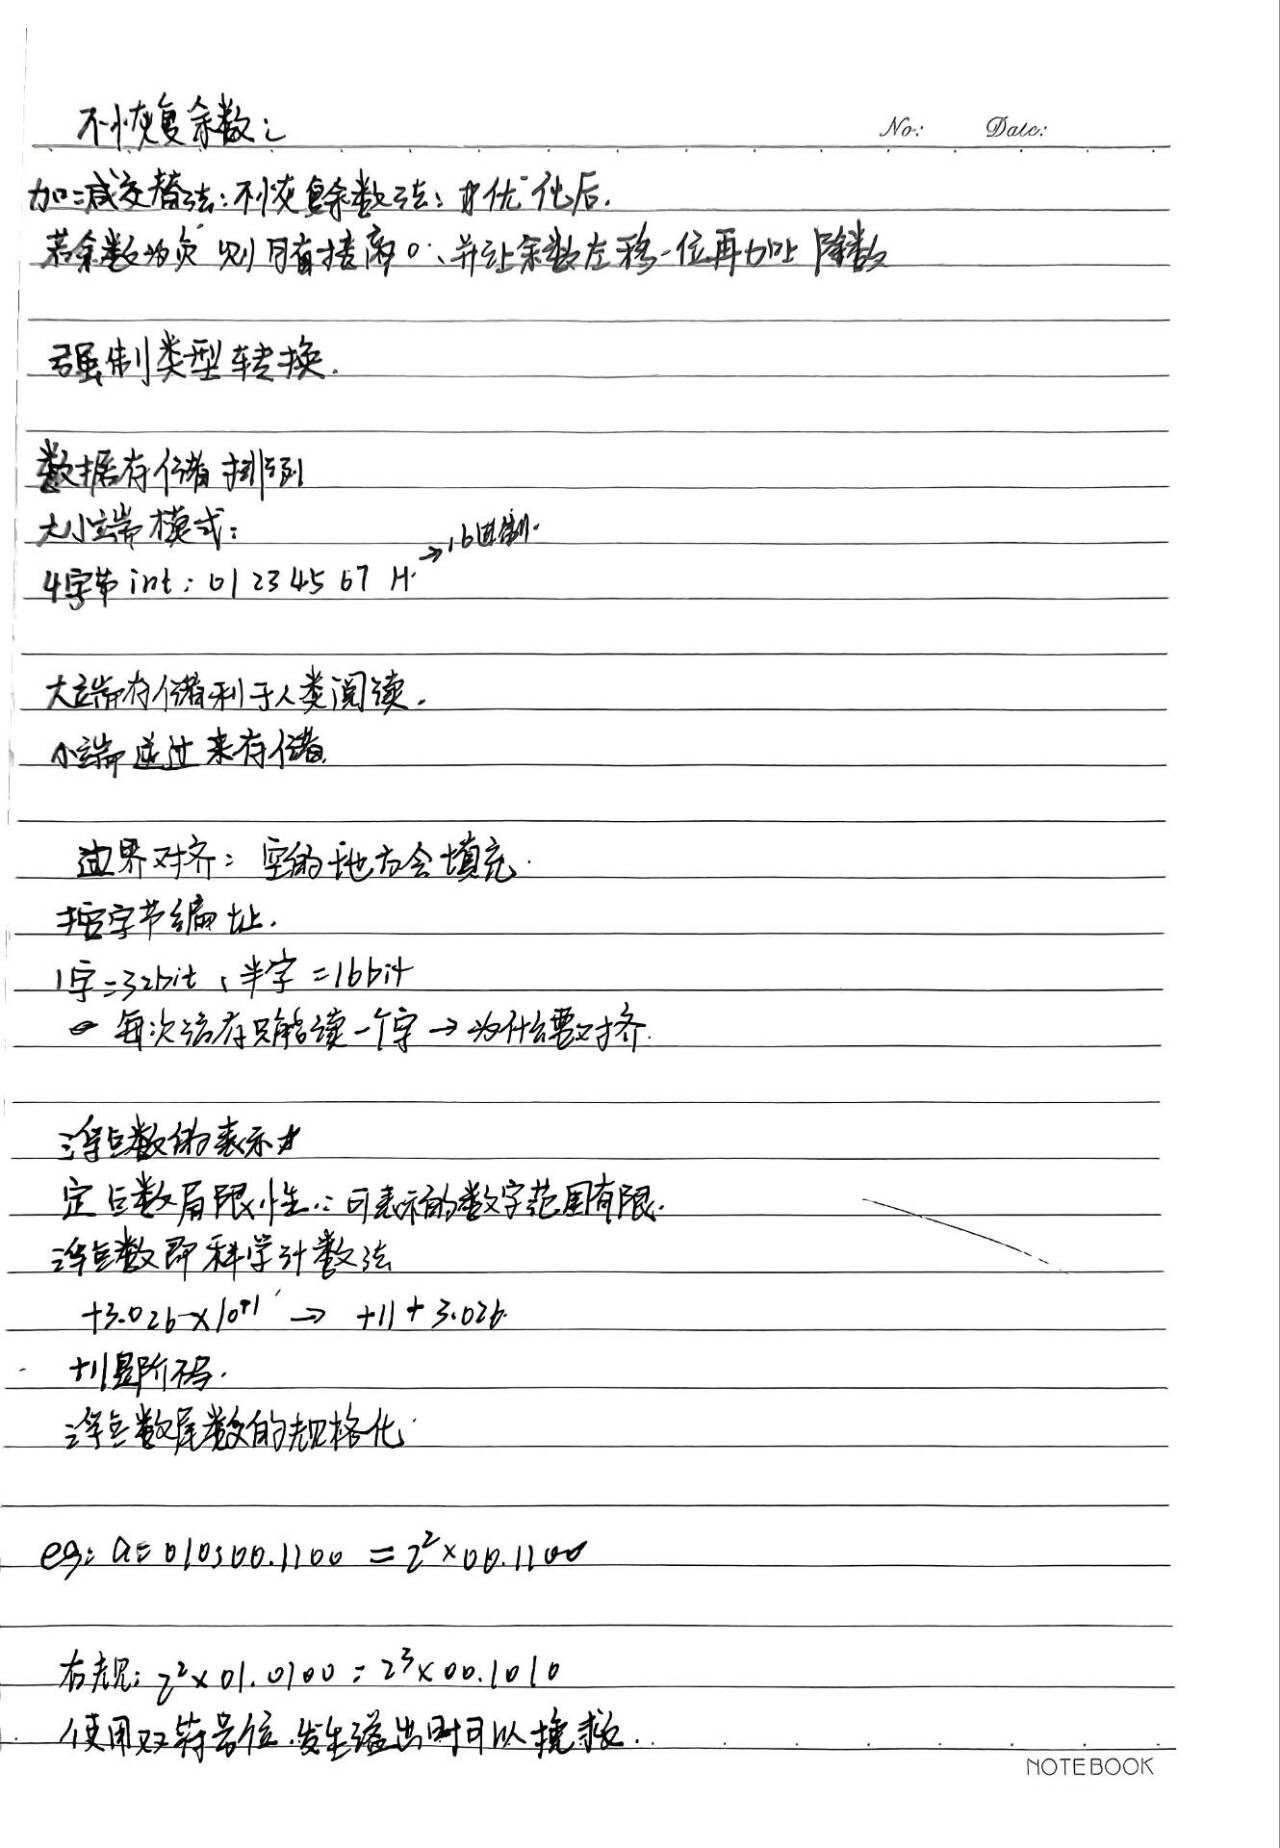 不恢复余数:
No: Date:
加减交替法:不恢复余数法: 优化后.
若余数为负 则 商 0、并让余数左移一位再加上 除数
强制类型转换.
数据存储排列
大小端模式:
→16进制.
4字节int: 01 23 45 67 H.
大端存储利于人类阅读.
小端逆过来存储.
边界对齐: 空的地方会填充.
按字节编址.
1字=32bit、半字=16bit
每次访存只能读一个字→为什么要对齐.
浮点数的表示
定点数局限性:可表示的数字范围有限.
浮点数即科学计数法
+3.026×10⁺¹¹ → +11 +3.026.
+11是阶码.
浮点数尾数的规格化
eg: a= 010;00.1100 = 2²×00.1100
右规: 2²×01.0100 = 2³×00.1010
使用双符号位.发生溢出时可以挽救.
NOTEBOOK